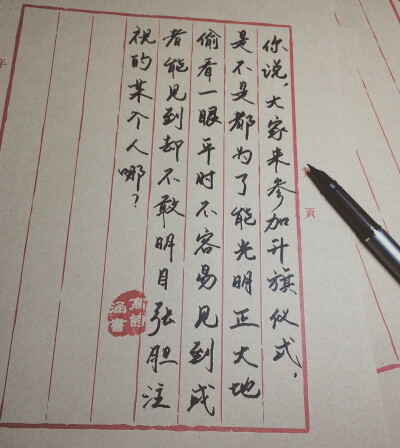 你说，大家来参加升旗仪式，
是不是都为了能光明正大地
偷看一眼平时不容易见到或
者能见到却不敢明目张胆注
视的某个人哪？
涵書
頁